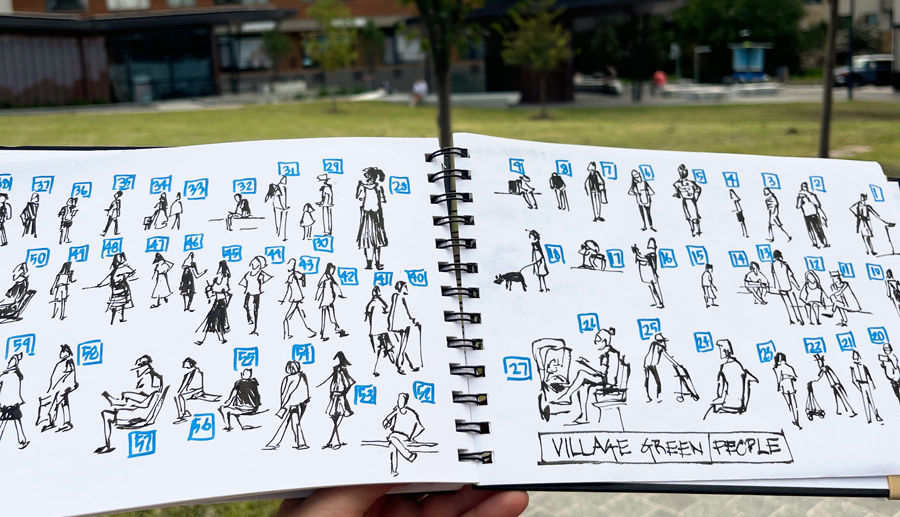 37 36 35 34 33 32 31 29 28
50 49 48 47 46 45 44 43 30 42 41 40
59 58 57 56 55 54 53 52
9 8 7 6 5 4 3 2 1
18 17 16 15 14 13 12 11 10
27 26 25 24 21 20
VILLAGE GREEN PEOPLE